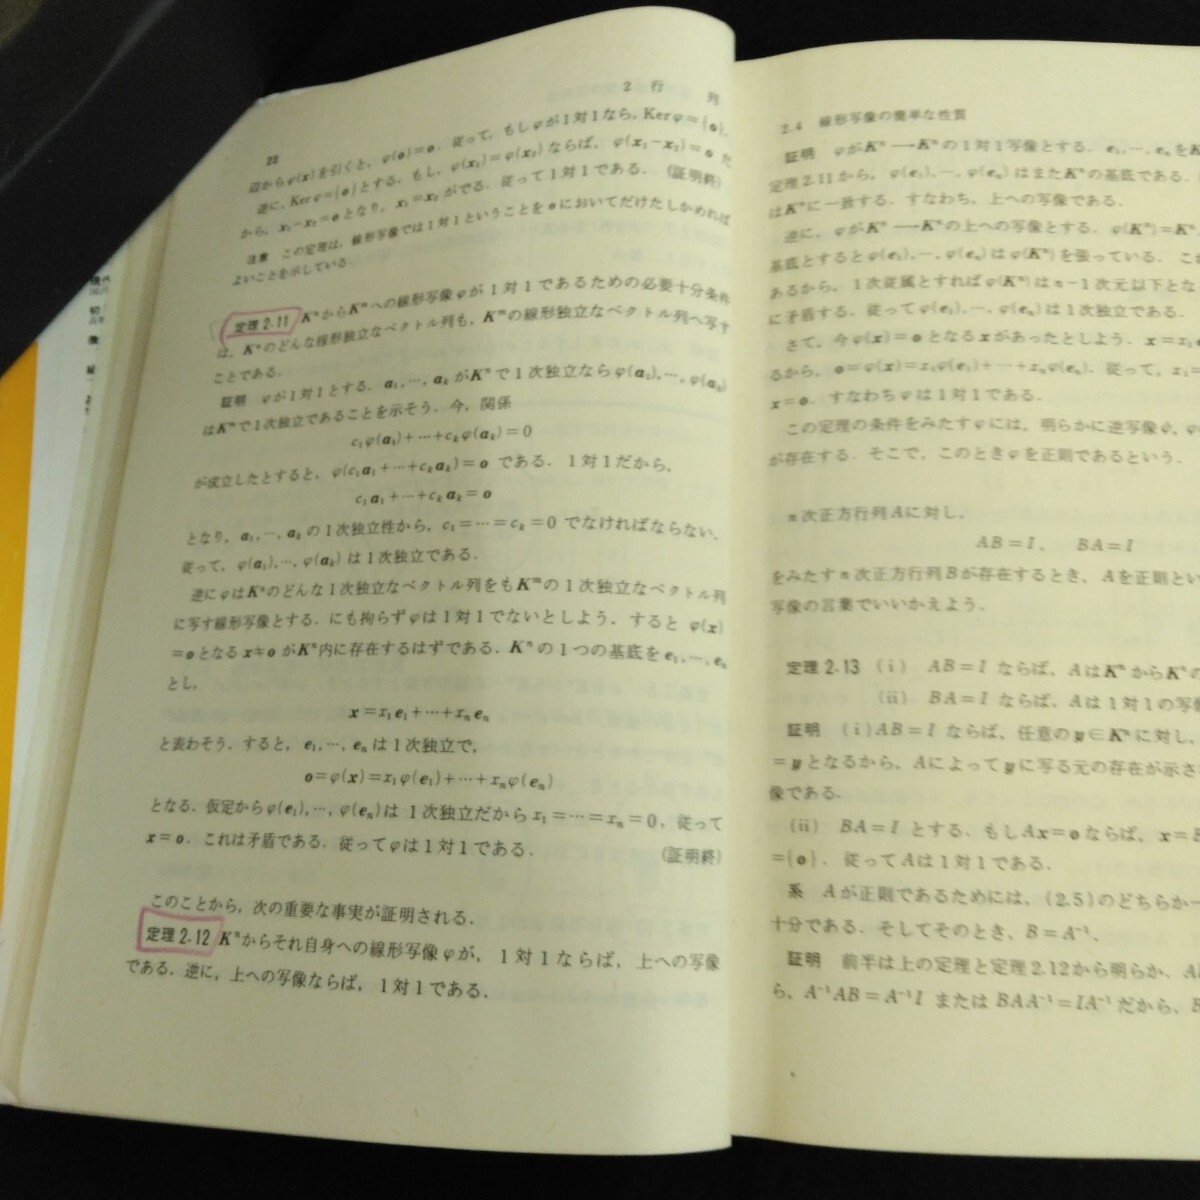 22
2 行 列
辺からφ(x)を引くと，φ(o)=o．従って，もしφが1対1なら，Kerφ={o}．
逆に，Kerφ={o}とする．もし，φ(x₁)=φ(x₂)ならば，φ(x₁−x₂)=o だ
から，x₁−x₂=oとなり，x₁=x₂がでる．従って1対1である．（証明終）
注意 この定理は，線形写像では1対1ということをoにおいてだけたしかめれば
よいことを示している．
定理2.11 KⁿからKᵐへの線形写像φが1対1であるための必要十分条件
は，Kⁿのどんな線形独立なベクトル列も，Kᵐの線形独立なベクトル列へ写す
ことである．
証明 φが1対1とする．a₁,…,aₖがKⁿで1次独立ならφ(a₁),…,φ(aₖ)
はKᵐで1次独立であることを示そう．今，関係
c₁φ(a₁)+…+cₖφ(aₖ)=0
が成立したとすると，φ(c₁a₁+…+cₖaₖ)=o である．1対1だから，
c₁a₁+…+cₖaₖ=o
となり，a₁,…,aₖの1次独立性から，c₁=…=cₖ=0 でなければならない．
従って，φ(a₁),…,φ(aₖ)は1次独立である．
逆にφはKⁿのどんな1次独立なベクトル列をもKᵐの1次独立なベクトル列
に写す線形写像とする．にも拘らずφは1対1でないとしよう．すると φ(x)
=oとなるx≠oがKⁿ内に存在するはずである．Kⁿの1つの基底をe₁,…,eₙ
とし，
x=x₁e₁+…+xₙeₙ
と表わそう．すると，e₁,…,eₙは1次独立で，
o=φ(x)=x₁φ(e₁)+…+xₙφ(eₙ)
となる．仮定からφ(e₁),…,φ(eₙ)は1次独立だからx₁=…=xₙ=0，従って
x=o．これは矛盾である．従ってφは1対1である．（証明終）
このことから，次の重要な事実が証明される．
定理2.12 Kⁿからそれ自身への線形写像φが，1対1ならば，上への写像
である．逆に，上への写像ならば，1対1である．
2.4 線形写像の簡単な性質
証明 φがKⁿ→Kⁿの1対1写像とする．e₁,…,eₙをK
定理2.11から，φ(e₁),…,φ(eₙ)はまたKⁿの基底である．
はKⁿに一致する．すなわち，上への写像である．
逆に，φがKⁿ→Kⁿの上への写像とする．φ(Kⁿ)=Kⁿ
基底とするとφ(e₁),…,φ(eₙ)はφ(Kⁿ)を張っている．これ
あるから，1次従属とすればφ(Kⁿ)はn−1次元以下とな
に矛盾する．従ってφ(e₁),…,φ(eₙ)は1次独立である．
さて，今φ(x)=oとなるxがあったとしよう．x=x₁e
るから，o=φ(x)=x₁φ(e₁)+…+xₙφ(eₙ)．従って，x₁=
x=o．すなわちφは1対1である．
この定理の条件をみたすφには，明らかに逆写像ψ，φ
が存在する．そこで，このときφを正則であるという．
n次正方行列Aに対し，
AB=I， BA=I
をみたすn次正方行列Bが存在するとき，Aを正則とい
写像の言葉でいいかえよう．
定理2.13 (i) AB=I ならば，AはKⁿからKⁿの
(ii) BA=I ならば，Aは1対1の写像
証明 (i)AB=I ならば，任意のy∈Kⁿに対し，
=yとなるから，Aによってyに写る元の存在が示さ
像である．
(ii) BA=I とする．もしAx=oならば，x=B
={o}．従ってAは1対1である．
系 Aが正則であるためには，(2.5)のどちらか一
十分である．そしてそのとき，B=A⁻¹．
証明 前半は上の定理と定理2.12から明らか．A
ら，A⁻¹AB=A⁻¹I またはBAA⁻¹=IA⁻¹だから，B